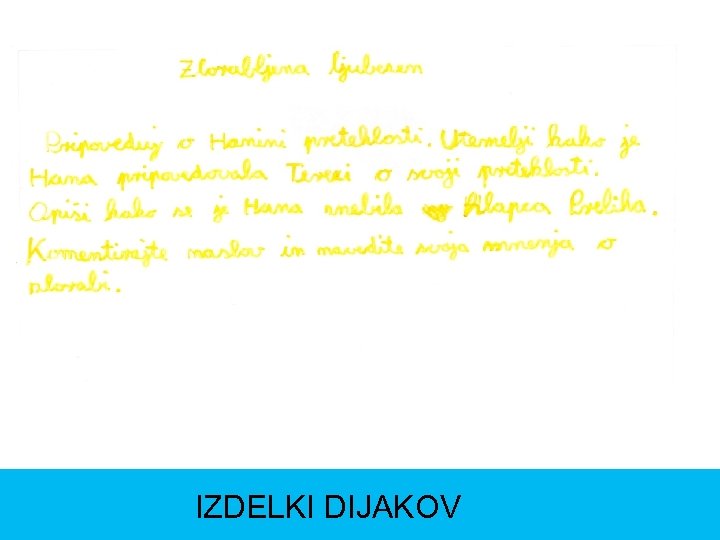 Zlorabljena ljubezen
Pripoveduj o Hanini preteklosti. Utemelji kako je
Hana pripovedovala Terezi o svoji preteklosti.
Opiši kako se je Hana znebila hlapca Preliha.
Komentirajte naslov in navedite svoja mnenja o
zlorabi.
IZDELKI DIJAKOV